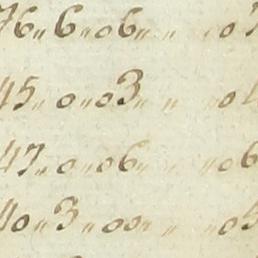 76〃6〃06〃 〃 〃07
45〃0〃03〃 〃 〃0
47〃0〃06〃 〃 〃06
40〃3〃00〃 〃 〃05